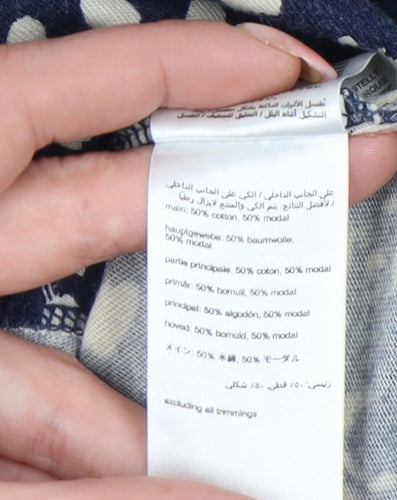 STELLA
تغسل الألوان الداكنة بشكل
التشكيل أثناء البلل / التعليق للتجفيف / الغسيل
على الجانب الداخلي / الكي على الجانب الداخلي
/ لأفضل النتائج، يتم الكي والمنتج لايزال رطباً
main: 50% cotton, 50% modal
hauptgewebe: 50% baumwolle,
50% modal
partie principale: 50% coton, 50% modal
primär: 50% bomull, 50% modal
principal: 50% algodón, 50% modal
hoved: 50% bomuld, 50% modal
メイン: 50% 木綿, 50% モーダル
رئيسي: ٥٠٪ قطن, ٥٠٪ شكلي
excluding all trimmings